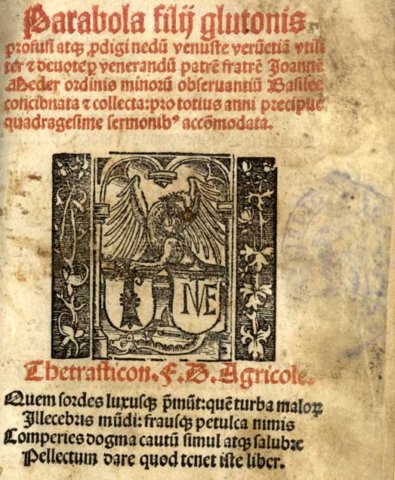 Parabola filij glutonis
profusi atqȝ ꝓdigi nedū venuste verūetiā vtili
ter ⁊ deuote ꝑ venerandū patrē fratrē Joannē
Meder ordinis minorū obseruantiū Basilee
concionata ⁊ collecta: pro totius anni precipue
quadragesime sermonibꝰ accōmodata.
NE
Thetrasticon. F. B. Agricole.
Quem sordes luxusqȝ p̄mūt: quē turba maloꝝ
Illecebris mūdi: frausqȝ petulca nimis
Comperies dogma cautū simul atqȝ salubre
Pellectum dare quod tenet iste liber.